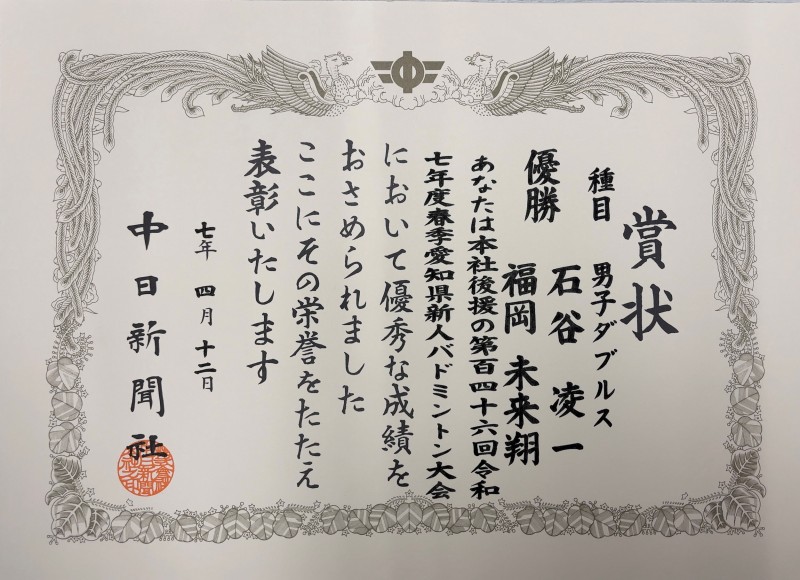 賞状
種目 男子ダブルス
優勝 石谷 凌一
福岡 未来翔
あなたは本社後援の第百四十六回令和
七年度春季愛知県新人バドミントン大会
において優秀な成績を
おさめられました
ここにその栄誉をたたえ
表彰いたします
七年 四月 十二日
中日新聞社